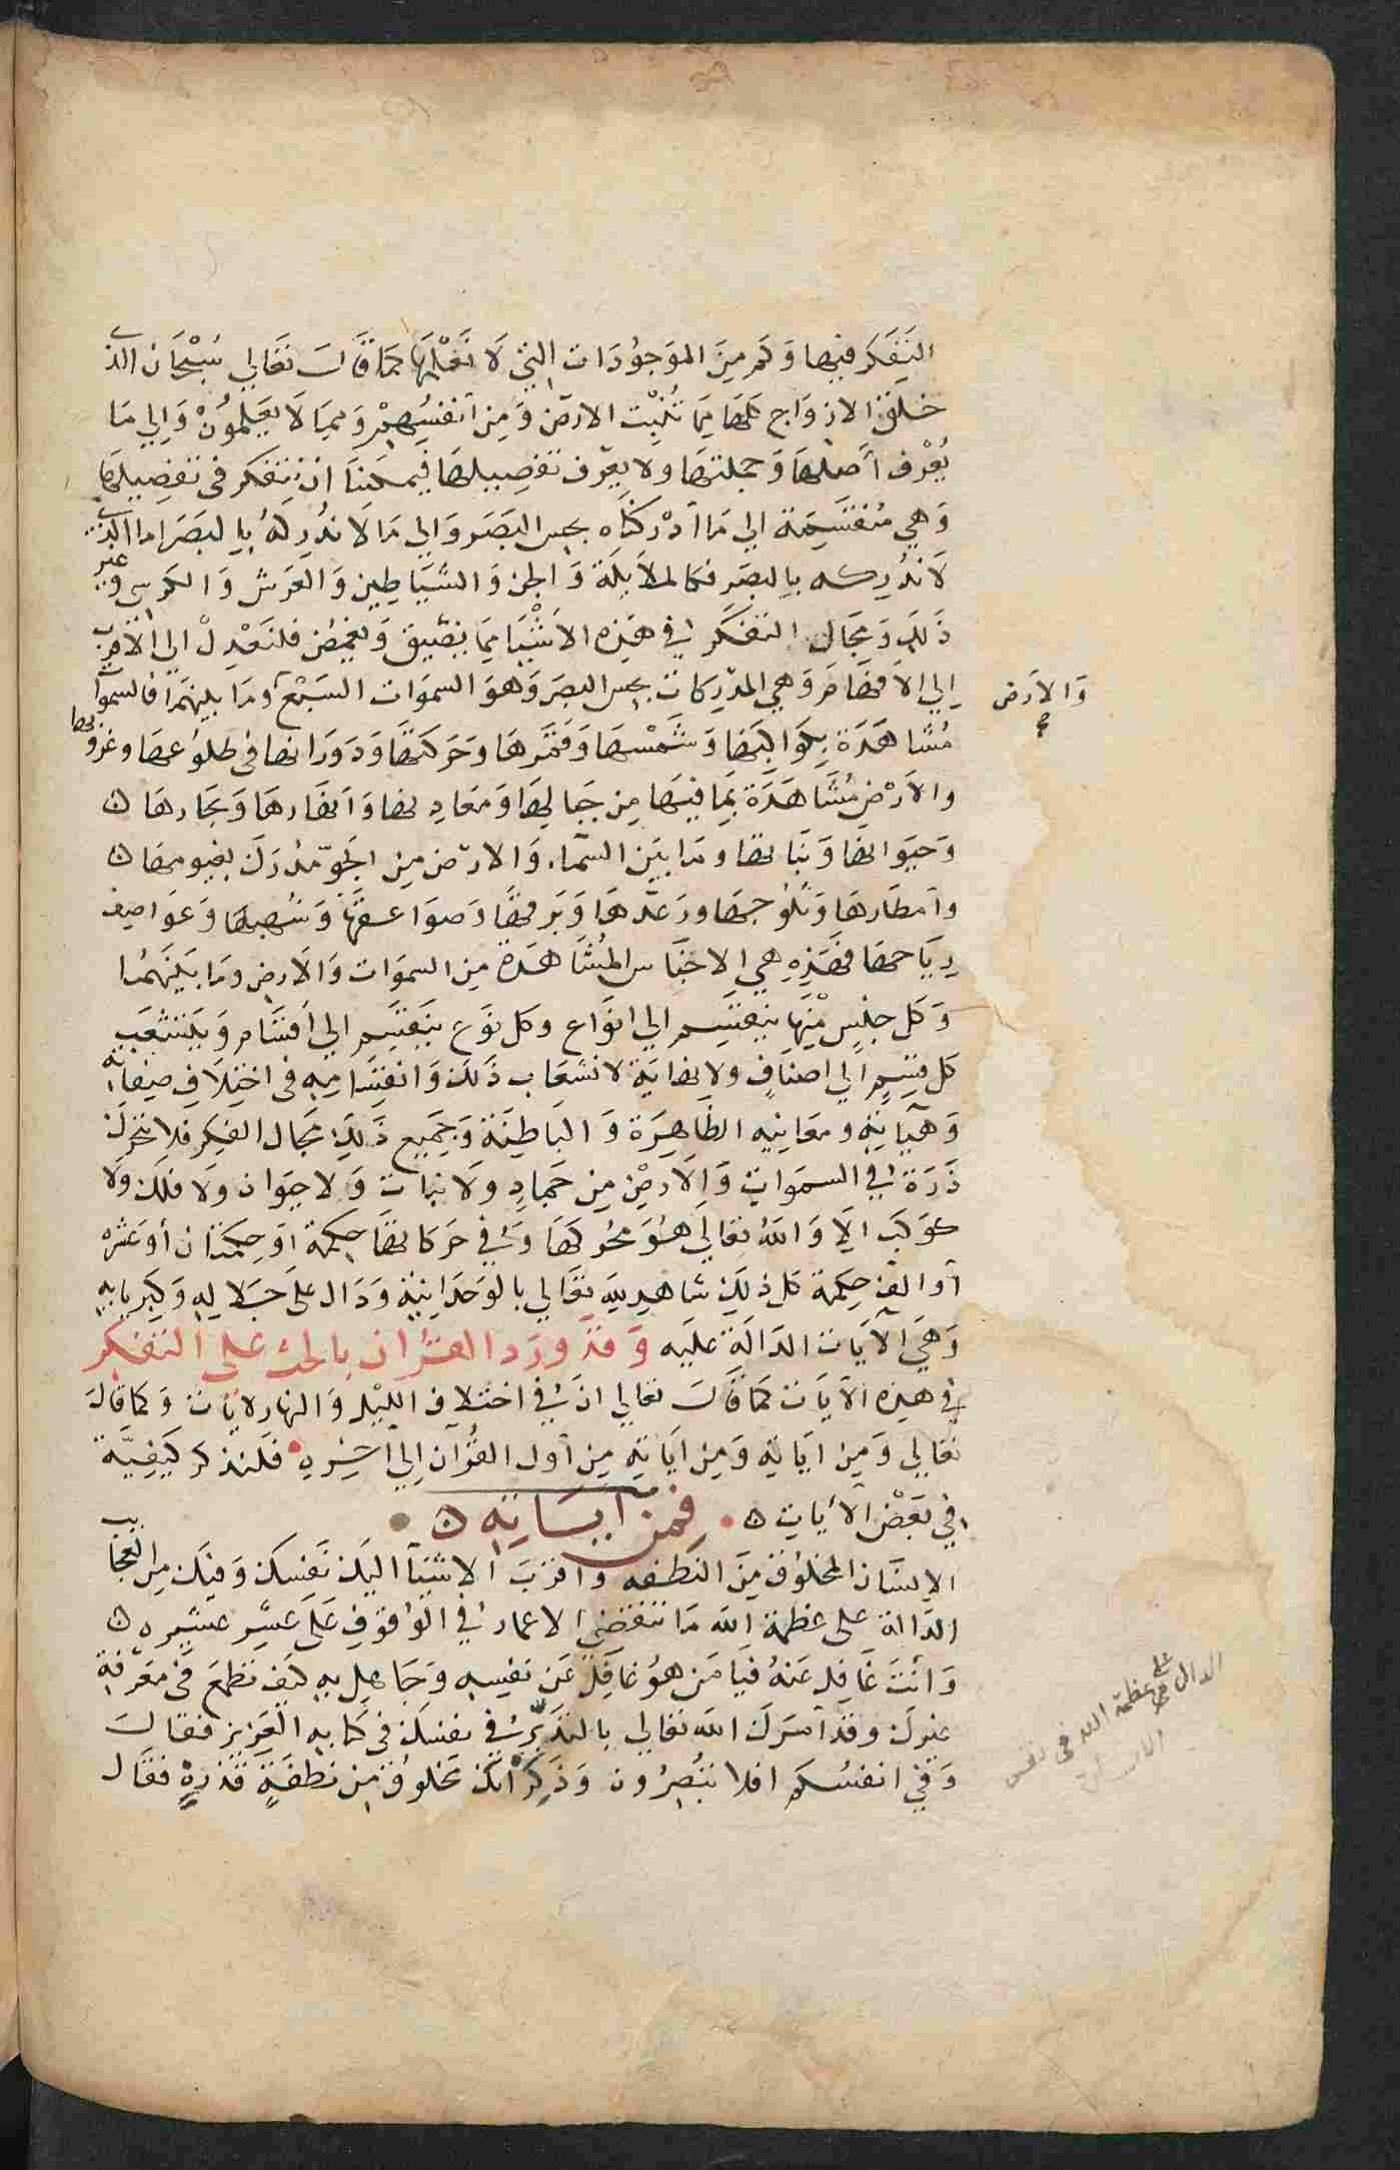 التفكر فيها وكم من الموجودات التي لا نعلمها كما قال تعالي سبحان الذي
خلق الازواج كلها مما تنبت الارض ومن انفسهم ومما لا يعلمون والي ما
يعرف أصلها وجملتها ولا يعرف تفصيلها فيمكننا ان نتفكر في تفصيلها
وهي منقسمة الي ما أدركناه بحس البصر والي ما لا ندركه بالبصر اما الذي
لا ندركه بالبصر فكالملايكة والجن والشياطين والعرش والكرسي وغير
ذلك ومجال التفكر في هذه الاشيا مما يضيق ويغمض فلنعدل الي الاقرب
الي الافهام وهي المدركات بحس البصر وهو السموات السبع وما بينهما فالسموات
والارض
صح
مشاهدة بكواكبها وشمسها وقمرها وحركتها ودورانها في طلوعها وغروبها
والارض مشاهدة بما فيها من جبالها ومعادنها وانهارها وبحارها ه
وحيوانها ونباتها وما بين السماء والارض من الجو مدرك بغيومها ه
وامطارها وثلوجها ورعدها وبرقها وصواعقها وشهبها وعواصف
رياحها فهذه هي الاجناس المشاهدة من السموات والارض وما بينهما
وكل جنس منها ينقسم الي انواع وكل نوع ينقسم الي أقسام ويتشعب
كل قسم الي اصناف ولا نهاية لانشعاب ذلك وانقسامه في اختلاف صفاته
وهياته ومعانيه الظاهرة والباطنة وجميع ذلك مجال الفكر فلا تتحرك
ذرة في السموات والارض من جماد ولا نبات ولا حيوان ولا فلك ولا
كوكب الا والله تعالي هو محركها وفي حركاتها حكمة او حكمتان أو عشره
أو الف حكمة كل ذلك شاهد لله تعالي بالوحدانية ودال على جلاله وكبريايه
وهي الآيات الدالة عليه وقد ورد القران بالحث على التفكر
في هذه الآيات كما قال تعالي ان في اختلاف الليل والنهار لآيات وكما قال
تعالي ومن اياته ومن اياته من أول القرآن الي آخره فلنذكر كيفية
في بعض الأيات ه فمن آياته ه
الانسان المخلوق من النطفه واقرب الاشيآ اليك نفسك وفيك من العجايب
الدالة على عظمة الله ما تنقضي الاعمار في الوقوف على عشر عشيره ه
وأنت غافل عنه فيا من هو غافل عن نفسه وجاهل به كيف تطمع في معرفة
غيرك وقد أمرك الله تعالي بالتدبر في نفسك في كتابه العزيز فقال
الدال على عظمة الله في نفس
الانسان
وفي انفسكم افلا تبصرون وذكر أنك مخلوق من نطفة قذرة فقال